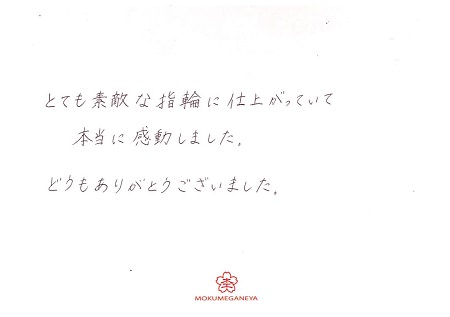 とても素敵な指輪に仕上がっていて
本当に感動しました。
どうもありがとうございました。
MOKUMEGANEYA